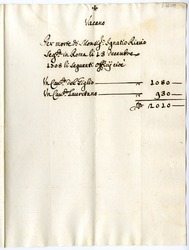 Vacano
Per morte di Monsig.r Ignatio Riario
Seg.ta in Roma li 13 decembre
1708 li seguenti offitij cioè
Un Cau.to del Giglio — 1080
Un Cau.to Lauretano — 930
2010